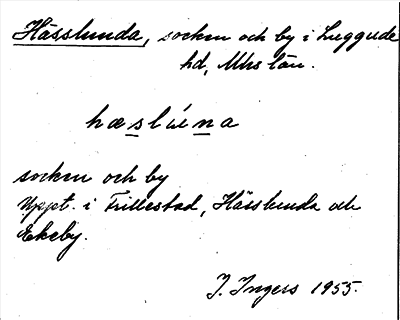 Hässlunda, socken och by i Luggude
hd, Mhs län.
hæslúna
socken och by
Uppt. i Frillestad, Hässlunda och
Ekeby.
J. Ingers 1955.